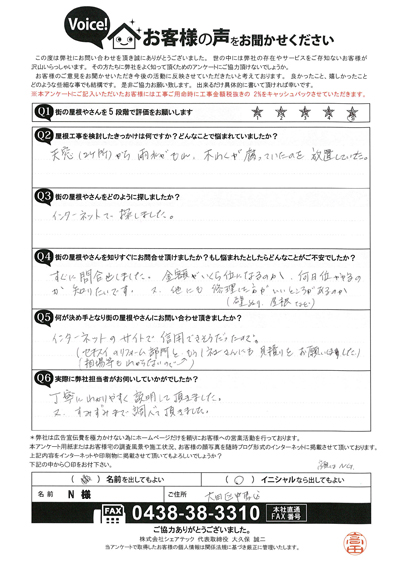 Voice!
お客様の声をお聞かせください
この度は弊社にお問い合わせを頂き誠にありがとうございました。 世の中には弊社の存在やサービスをご存知ないお客様が
沢山いらっしゃいます。 その方たちに弊社をよく知って頂くためのアンケートにご協力頂けないでしょうか。
お客様のご意見をお聞かせいただき今後の活動に反映させていただきたいと考えております。 良かったこと、嬉しかったこと
どのような些細な事でも結構です。 是非ご協力お願い致します。 出来るだけ具体的に書いて頂ければ幸いです。
※本アンケートにご記入いただいたお客様には工事ご用命時に工事金額税抜きの 2%をキャッシュバックさせていただきます。
Q1 街の屋根やさんを5段階で評価をお願いします
Q2 屋根工事を検討したきっかけは何ですか？どんなことで悩まれていましたか？
天窓(2ヶ所)から雨がもれ、木わくが腐っていたのを放置していた。
Q3 街の屋根やさんをどのように探しましたか？
インターネットで探しました。
Q4 街の屋根やさんを知りすぐにお問合せ頂けましたか？もし悩まれたとしたらどんなことがご不安でしたか？
すぐに問合せしました。 金額がいくら位になるのか、何日位かかるの
か知りたいです。 又、他にも修理した方がいいところがあるのか
Q5 何が決め手となり街の屋根やさんにお問い合わせ頂きましたか？
インターネットのサイトで信用できそうだったので。
Q6 実際に弊社担当者がお伺いしていかがでしたか？
丁寧にわかりやすく説明して頂きました。
又、すみずみまで調べて頂きました。
＊弊社は広告宣伝費を極力かけない為にホームページだけを頼りにお客様への営業活動を行っております。
本アンケート用紙またはお客様宅の調査風景や施工状況、お客様の顔写真を随時ブログ形式のインターネットに掲載させて頂いております。
上記内容をインターネットや印刷物に掲載させて頂いてもよろしいでしょうか？
下記の中から〇印をお付下さい。
( ) 名前を出してもよい ( ○ ) イニシャルなら出してもよい
名前 N 様 ご住所 大田区中馬込
FAX 0438-38-3310 本社直通 FAX番号
ご協力ありがとうございました。
株式会社シェアテック 代表取締役 大久保 誠二
当アンケートで取得したお客様の個人情報は関係法規に基づき厳正に管理いたします。